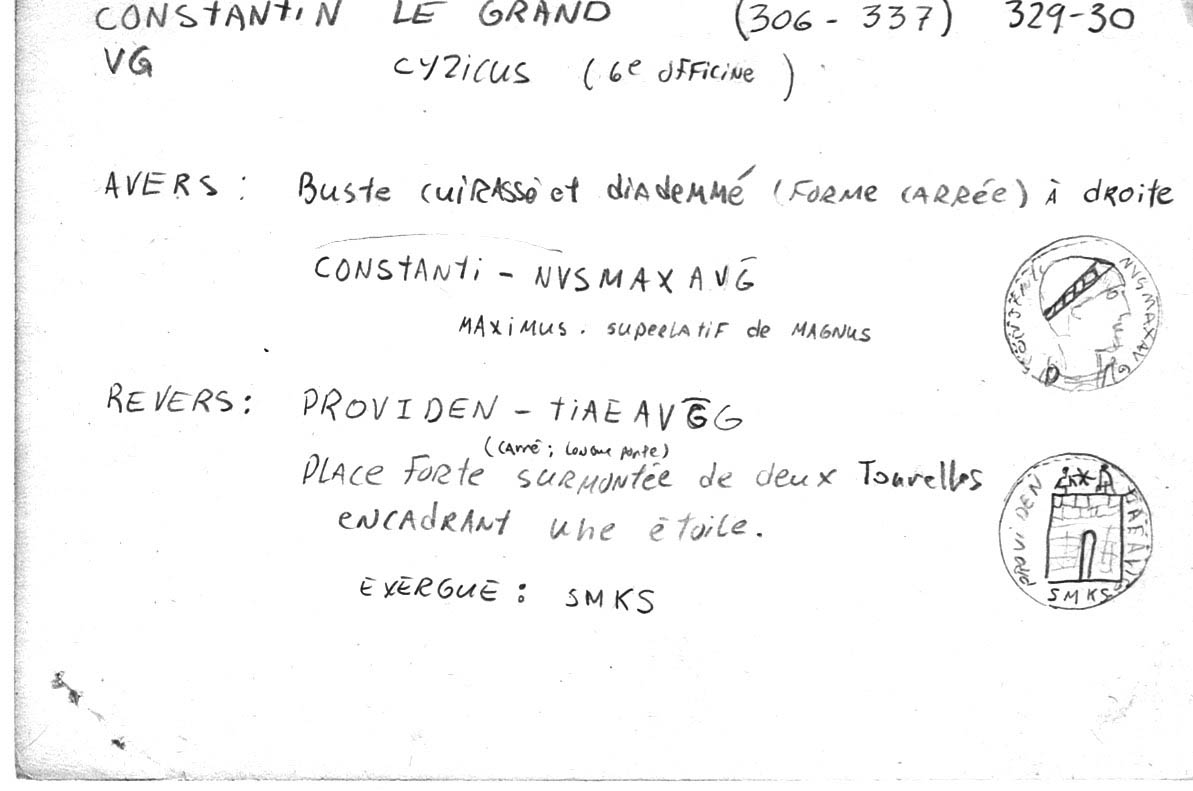 CONSTANTIN LE GRAND (306 - 337) 329-30
VG CYZICUS (6e OFFICINE)
AVERS : Buste cuiRASSé et diADEMMÉ (FORME CARRÉE) À dRoite
CONSTANTI - NVSMAX AVG
MAXIMUS. SUPERLATIF de MAGNUS
REVERS : PROVIDEN - TIAE AVGG
(carré ; porte)
PLACE FORTE SURMONTÉE de deux Tourelles
eNCAdRANT une étoile.
EXERGUE : SMKS
CONSTANTI NVSMAXAVG
PROVIDEN TIAEAVGG
SMKS